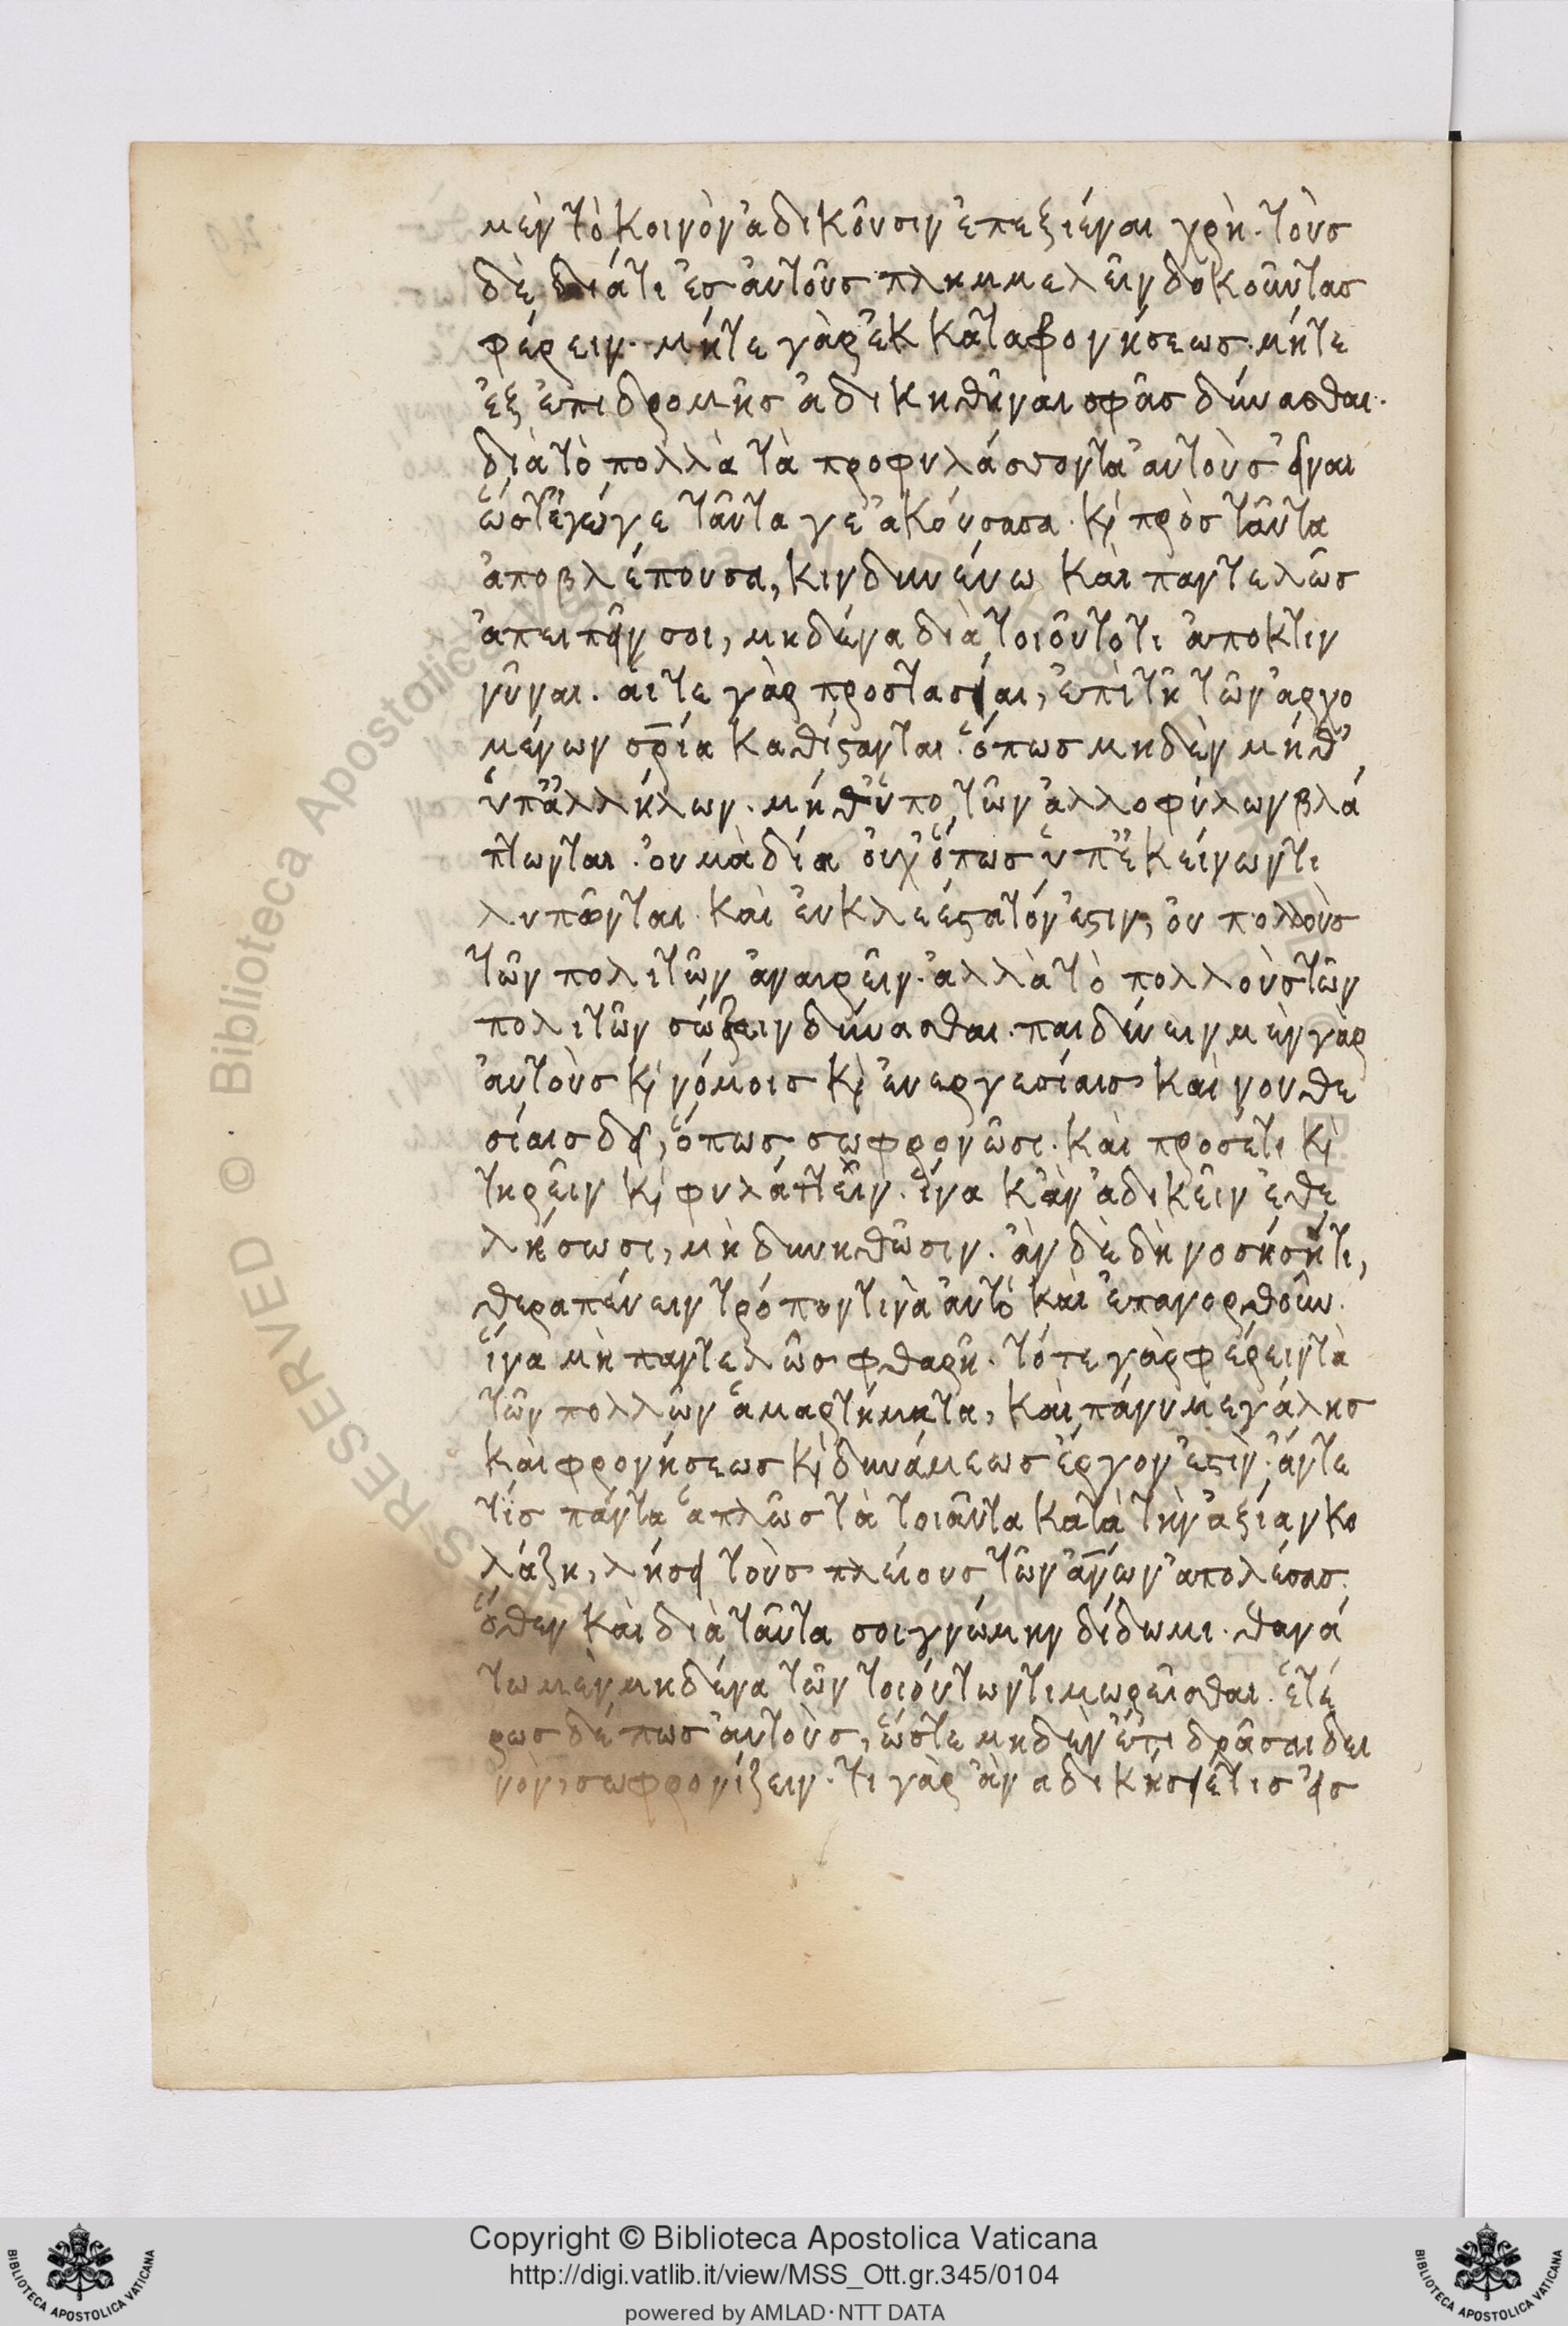 μὲν τὸ κοινὸν ἀδικοῦσιν ἐπεξιέναι χρὴ. τοὺς
δὲ διά τι ἐς αὐτοὺς πλημμελεῖν δοκοῦντας
φέρειν. μήτε γὰρ ἐκ καταφονήσεως. μήτε
ἐξ ἐπιδρομῆς ἀδικηθῆναι σφᾶς δύνασθαι.
διὰ τὸ πολλὰ τὰ προφυλάσσοντα αὐτοὺς εἶναι
ὥστ' ἔγωγε ταῦτα γε ἀκούσασα. κỳ πρὸς ταῦτα
ἀποβλέπουσα, κινδυνεύω καὶ παντελῶς
ἀπειπεῖν σοι, μηδένα διὰ τοιοῦτό τι ἀποκτιν
νύναι. αἵ τε γὰρ προστασίαι, ἐπὶ τῆ τῶν ἀρχο
μένων σρ̅ία καθίςανται. ὅπως μηδὲν μήθ'
ὑπ' ἀλλήλων. μήθ' ὑπο τῶν ἀλλοφύλων βλά
πτωνται. οὐ μὰ δία οὐχ' ὅπως ὑπ' ἐκείνων τι
λυπῶνται. καὶ εὐκλεέςατόν ἐςιν, οὐ πολλοὺς
τῶν πολιτῶν ἀναιρεῖν. ἀλλὰ τὸ πολλοὺς τῶν
πολιτῶν σώζειν δύνασθαι. παιδεύειν μὲν γὰρ
αὐτοὺς κὶ νόμοις κὶ εὐεργεσίαις καὶ νουθε
σίαις δεῖ, ὅπως σωφρονῶσι. καὶ προσέτι κὶ
τηρεῖν κὶ φυλάττειν. ἵνα κἂν ἀδικεῖν ἐθε
λήσωσι, μὴ δυνηθῶσιν. ἂν δὲ δὴ νοσήσῃ τι,
θεραπεύειν τρόπον τινὰ αὐτὸ καὶ ἐπανορθοῦν.
ἵνα μὴ παντελῶς φθαρῆ. τό τε γὰρ φέρειν τὰ
τῶν πολλῶν ἁμαρτήματα, καὶ πάνυ μεγάλης
καὶ φρονήσεως κὶ δυνάμεως ἔργον ἐςὶν. ἄν τε
τίς πάντα ἁπλῶς τὰ τοιαῦτα κατὰ τὴν ἀξίαν κο
λάζη, λήσει τοὺς πλείους τῶν ἀν̅ων ἀπολέσας.
ὅθεν καὶ διὰ ταῦτα σοι γνώμην δίδωμι. θανά
τω μὲν μηδένα τῶν τοιούτων τιμωρεῖσθαι. ἑτέ
ρως δέ πως αὐτοὺς, ὥστε μηδὲν ἔτι δρᾶσαι δει
νὸν, σωφρονίζειν. τί γὰρ ἂν ἀδικήσειέ τις εἰς
Copyright © Biblioteca Apostolica Vaticana
http://digi.vatlib.it/view/MSS_Ott.gr.345/0104
powered by AMLAD·NTT DATA